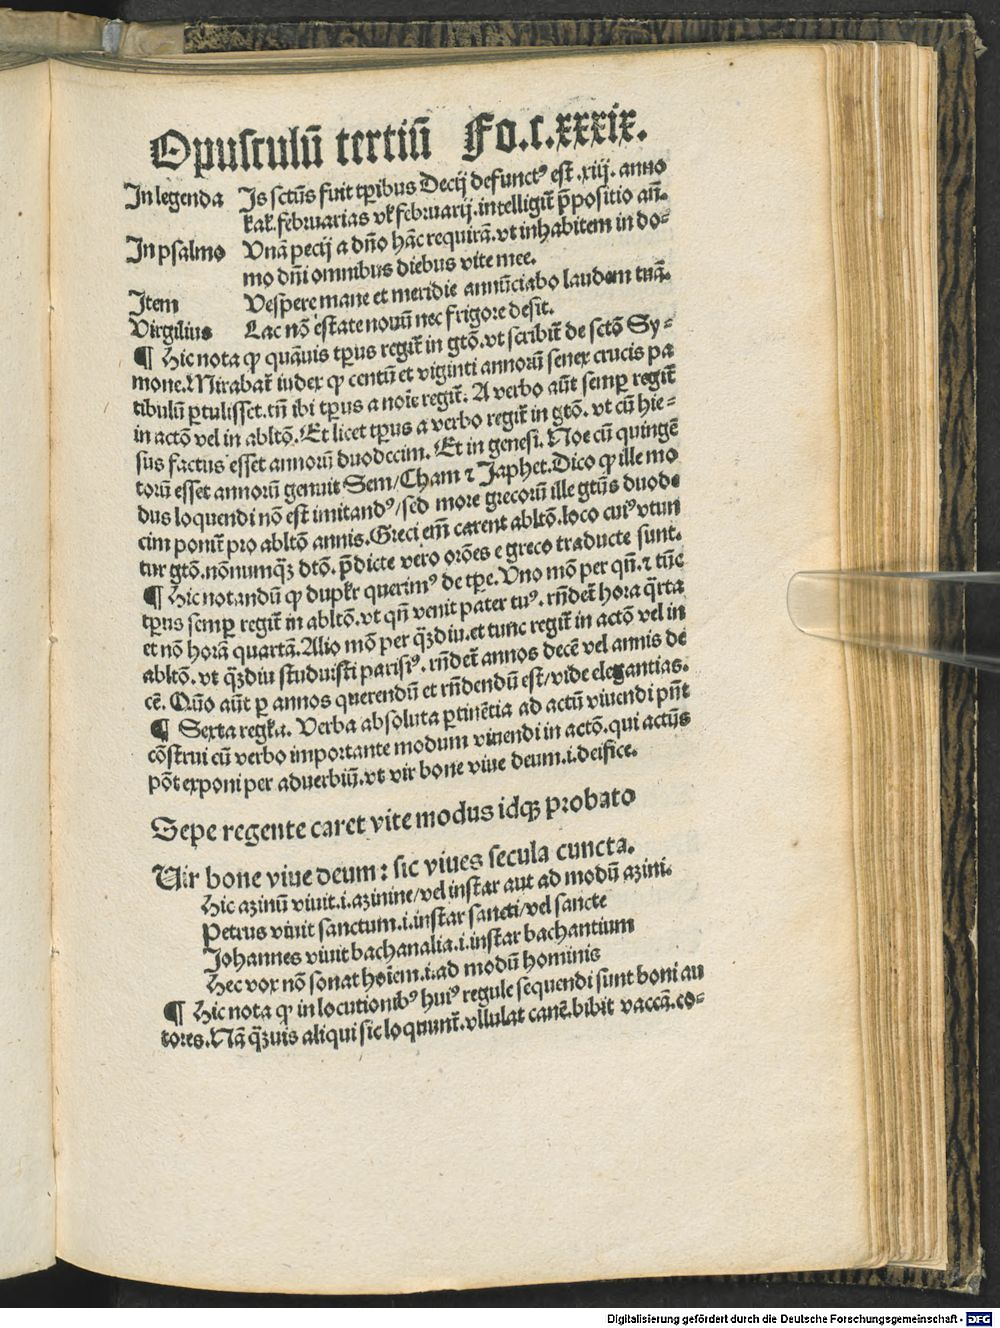 Opusculū tertiū Fo.c.xxxix.
In legenda Is sctūs fuit tp̄ibus Decij defunctꝰ est .xiij. anno
kal̄.februarias vl̓ februarij.intelligit̄ p̄positio an̄.
In psalmo Vnā pecij a dn̄o hāc requirā.vt inhabitem in do⸗
mo dn̄i omnibus diebus vite mee.
Item Vespere mane et meridie annūciabo laudem tuā.
Virgilius Lac nō estate nouū nec frigore desit.
¶ Hic nota ꝙ quāuis tp̄us regit̄ in gtō.vt scribit̄ de sctō Sy⸗
mone.Mirabat̄ iudex ꝙ centū et viginti annorū senex crucis pa
tibulū ꝑtulisset.tn̄ ibi tp̄us a noīe regit̄. A verbo aūt semꝑ regit̄
in actō vel in abltō.Et licet tp̄us a verbo regit̄ in gtō. vt cū hie⸗
sus factus esset annorū duodecim. Et in genesi. Noe cū quingē
torū esset annorū genuit Sem/Cham ⁊ Japhet.Dico ꝙ ille mo
dus loquendi nō est imitandꝰ/sed more grecorū ille gtūs duode
cim ponit̄ pro abltō annis.Greci em̄ carent abltō.loco cuiꝰ vtun
tur gtō.nōnumqꝫ̄ dtō. p̄dicte vero orōes e greco traducte sunt.
¶ Hic notandū ꝙ dupl̓r querimꝰ de tp̄e. Vno mō per qn̄. ⁊ tūc
tp̄us semꝑ regit̄ in abltō.vt qn̄ venit pater tuꝰ. rn̄det̄ hora q̄rta
et nō horā quartā.Alio mō per qꝫ̄diu.et tunc regit̄ in actō vel in
abltō. vt qꝫ̄diu studuisti parisiꝰ. rn̄det̄ annos decē vel annis de
cē. Quō aūt ꝑ annos querendū et rn̄dendū est/vide elegantias.
¶ Sexta regl̓a. Verba absoluta ꝑtinētia ad actū viuendi pn̄t
cōstrui cū verbo importante modum viuendi in actō. qui actūs
pōt exponi per aduerbiū.vt vir bone viue deum.i.deifice.
Sepe regente caret vite modus idqꝫ probato
Uir bone viue deum: sic viues secula cuncta.
Hic azinū viuit.i.azinine/vel instar aut ad modū azini.
Petrus viuit sanctum.i.instar sancti/vel sancte
Johannes viuit bachanalia.i.instar bachantium
Hec vox nō sonat hoīem.i.ad modū hominis
¶ Hic nota ꝙ in locutionibꝰ huiꝰ regule sequendi sunt boni au
tores.Nā qꝫ̄uis aliqui sic loquunt̄.vllulat canē.bibit vaccā.co⸗
Digitalisierung gefördert durch die Deutsche Forschungsgemeinschaft - DFG